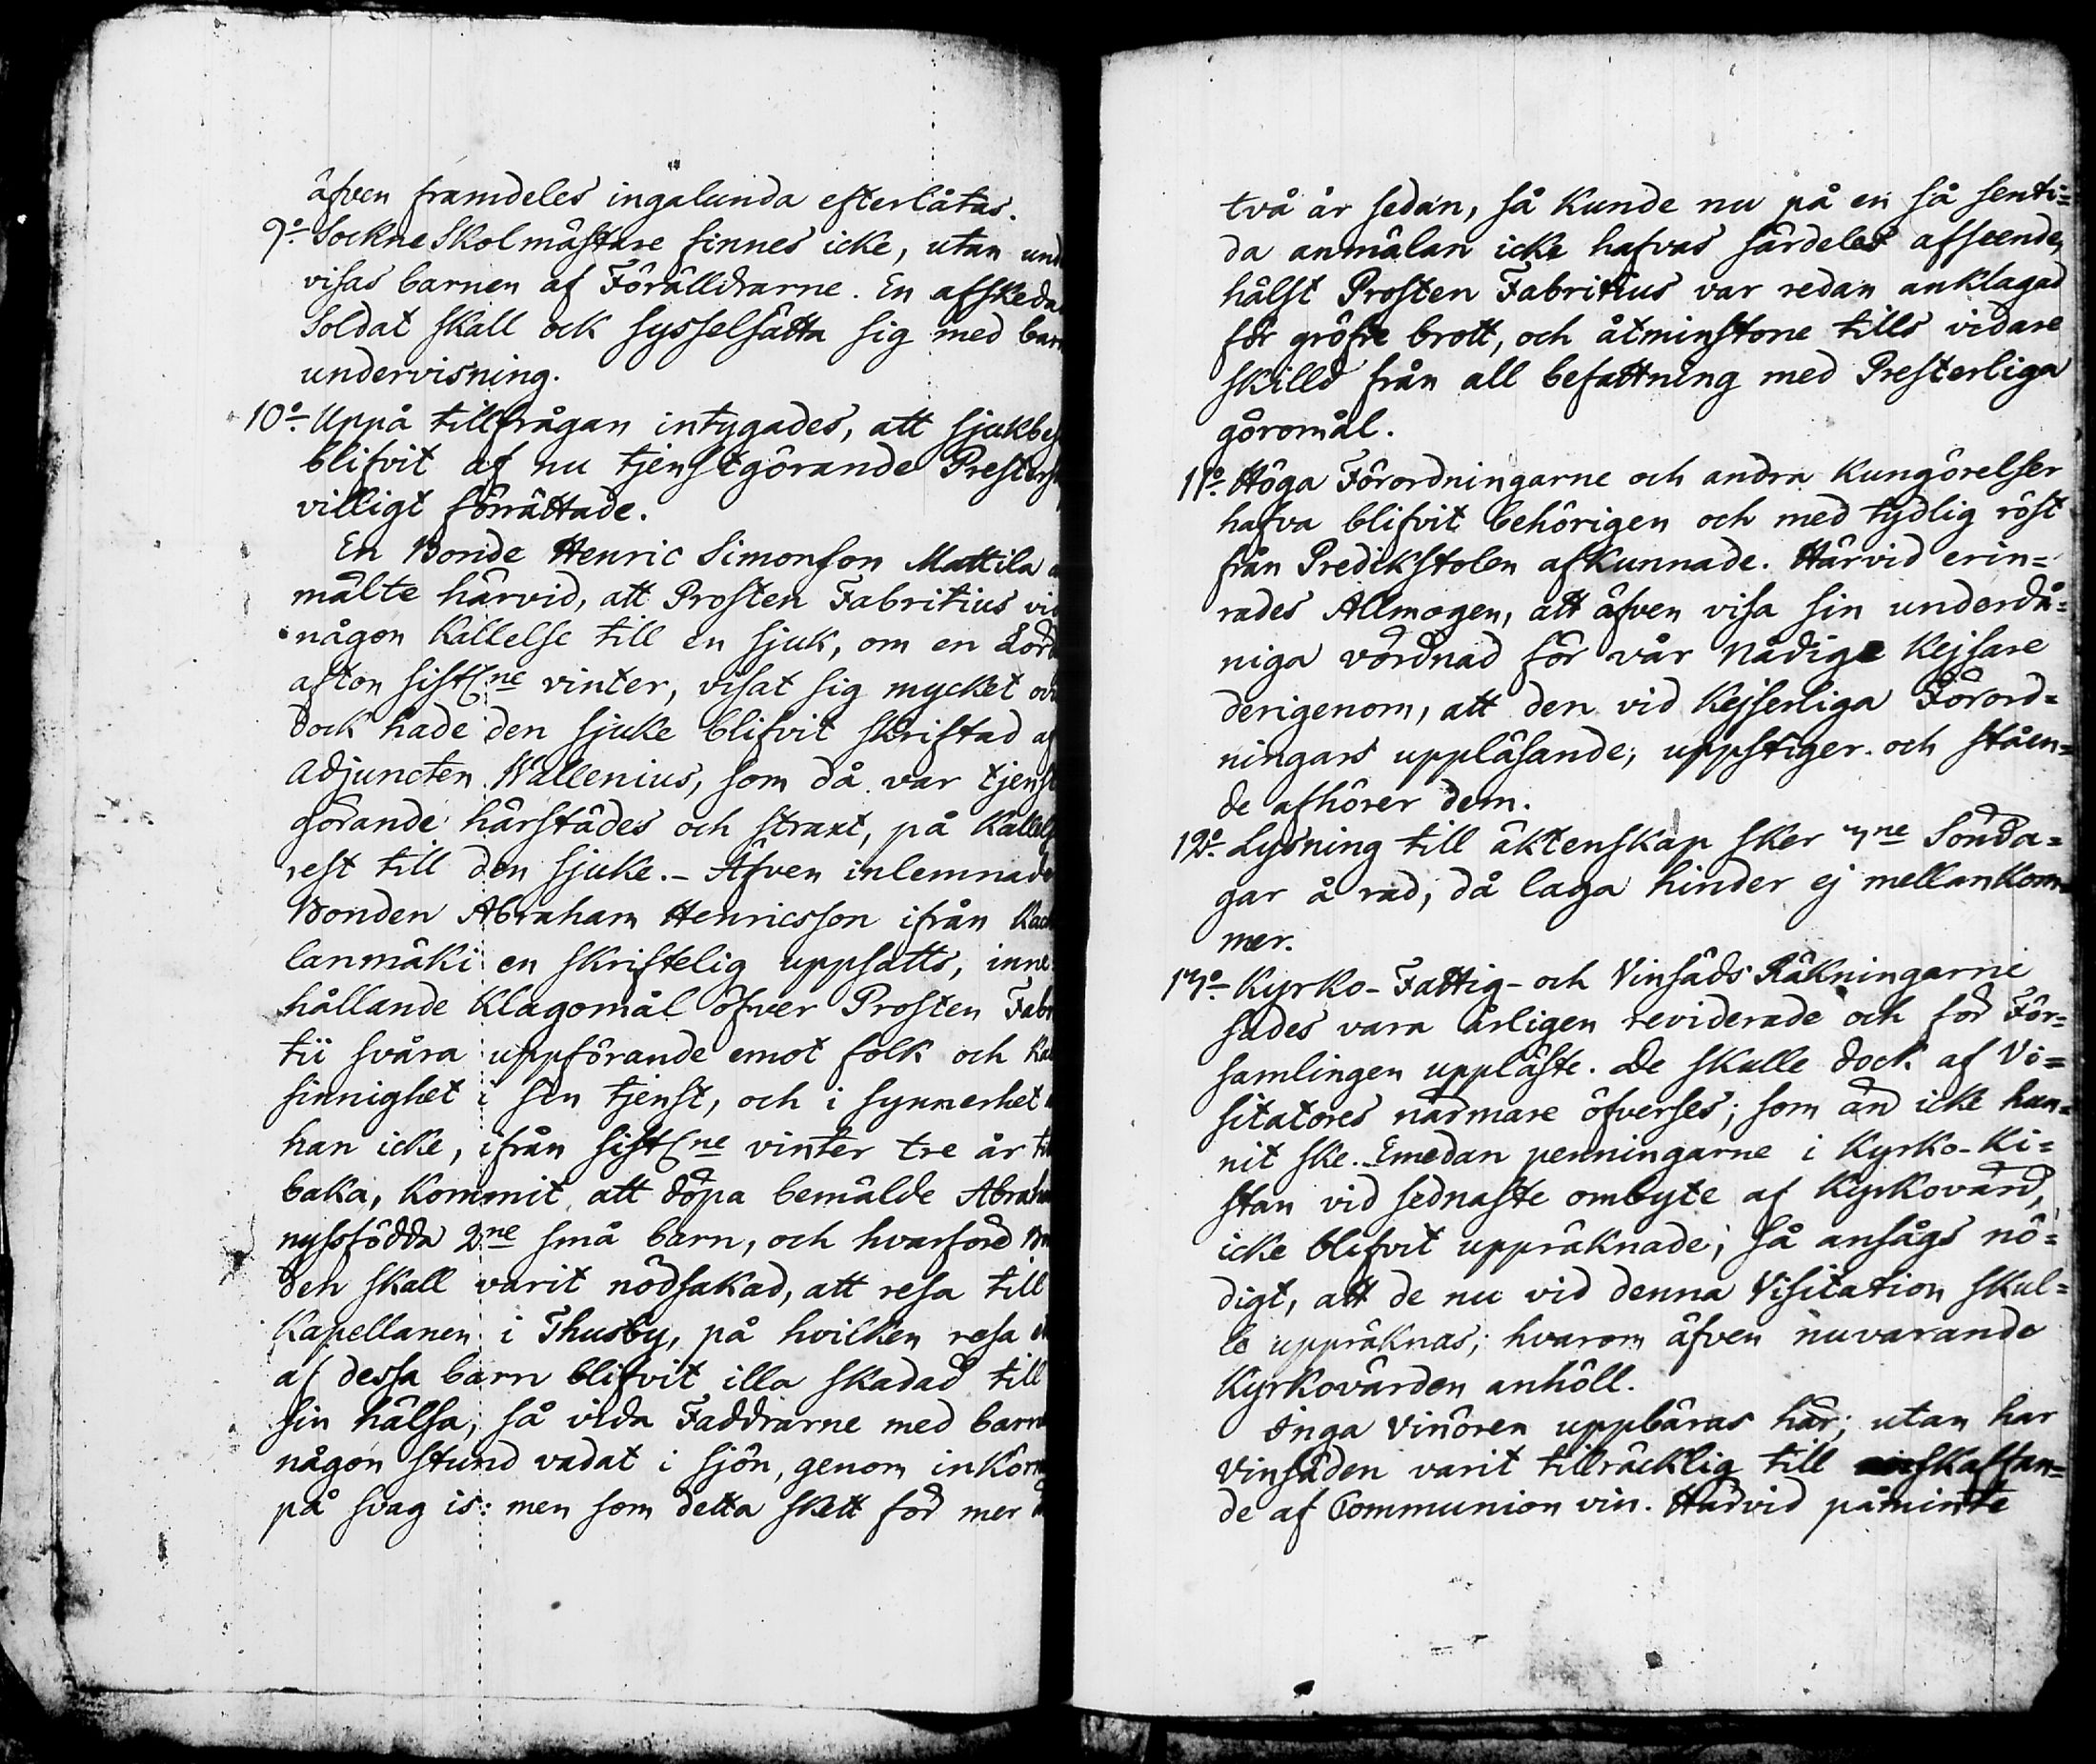 äfven framdeles ingalunda efterlåtas.
9:o Sockne Skolmästare finnes icke, utan und
visas barnen af Förälldrarne. En afskeda
Soldat skall ock sysselsätta sig med barn
undervisning.
10:o Uppå tillfrågan intygades, att sjukbe
blifvit af nu tjenstgörande Presters
villigt förrättade.
En Bonde Henric Simonson Mattila a
mälte härvid, att Prosten Fabritius vid
någon Kallelse till en sjuk, om en Lörd
afton sistl:ne vinter, visat sig mycket ov
dock hade den sjuke blifvit skriftad af
Adjuncten Wallenius, som då var tjenst
görande härstädes och straxt, på Kallels
rest till den sjuke. – Äfven inlemnade
Bonden Abraham Henricsson ifrån Kau
lanmäki en skriftelig uppsatts, inne
hållande Klagomål öfver Prosten Fabri
tii svåra uppförande emot folk och Kall
sinnighet i sin tjenst, och i synnerhet
han icke, ifrån sistl:ne vinter tre år til
baka, Kommit att döpa bemälde Abraha
nyssfödda 2:ne små barn, och hvarföre Bon
den skall varit nödsakad, att resa till
Kapellanen i Thusby, på hvilken resa e
af dessa barn blifvit illa skadad till
sin hälsa, så vida Faddrarne med barn
någon stund vadat i sjön, genom inkörn
på svag is: men som detta skett för mer ä
två år sedan, så Kunde nu på en så senti=
da anmälan icke hafvas särdeles afseende,
hälst Prosten Fabritius var redan anklagad
för gröfre brott, och åtminstone tills vidare
skilld från all befattning med Presterliga
göromål.
11:o Höga Förordningarne och andra Kungörelser
hafva blifvit behörigen och med tydlig röst
från Predikstolen afkunnade. Härvid erin=
rades Allmogen, att äfven visa sin underdå=
niga vördnad för vår Nådige Kejsare
derigenom, att den vid Kejserliga Förord=
ningars uppläsande, uppstiger och ståen=
de afhörer dem.
12:o Lysning till äktenskap sker 3:ne Sönda=
gar å rad, då laga hinder ej mellankom=
mer.
13:o Kyrko- Fattig- och Vinsäds Räkningarne
sades vara årligen reviderade och för För=
samlingen uppläste. De skulle dock af Vi=
sitatores närmare öfverses; som än icke hun=
nit ske. Emedan penningarne i Kyrko-Ki=
stan vid sednaste ombyte af Kyrkovärd,
icke blifvit uppräknade; så ansågs nö=
digt, att de nu vid denna Visitation skul=
le uppräknas; hvarom äfven nuvarande
Kyrkovärden anhöll.
Inga Vinören uppbäras här; utan har
Vinsäden varit tillräcklig till anskaffan=
de af Communion vin. Härvid påminte